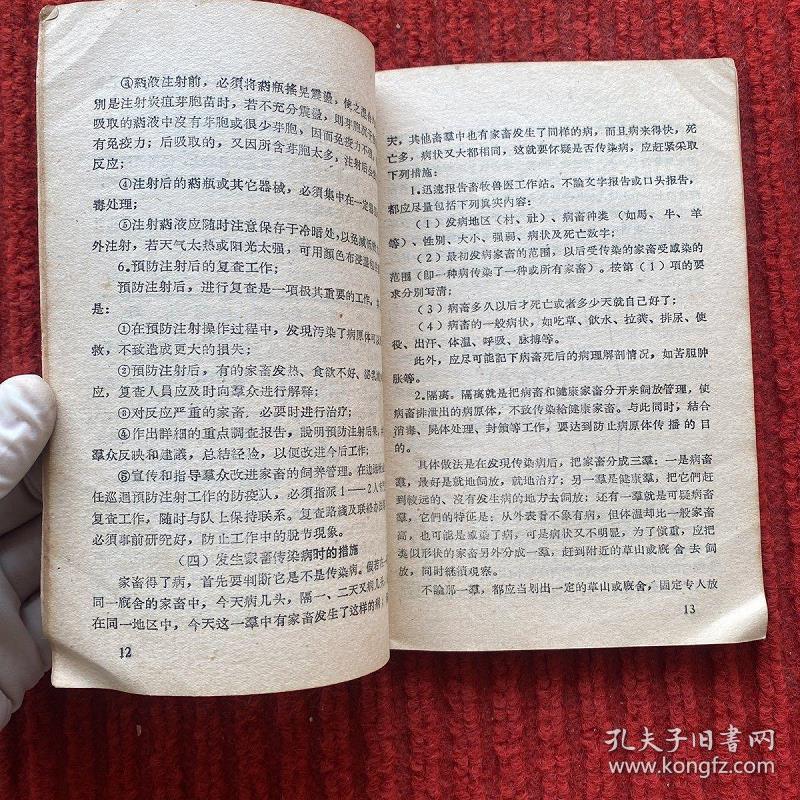 ③药液注射前，必須将药瓶搖晃震盪，使之
別是注射炭疽芽胞苗时，若不充分震盪，則芽胞
吸取的药液中沒有芽胞或很少芽胞，因而免疫力不
有免疫力；后吸取的，又因所含芽胞太多，注射后会
反应；
④注射后的药瓶或其它器械，必須集中在一定
毒处理；
⑤注射药液应随时注意保存于冷暗处，以免减
外注射，若天气太热或阳光太强，可用顏色布浸湿
6.預防注射后的复查工作；
預防注射后，进行复查是一項极其重要的工作，
是：
①在預防注射操作过程中，发現污染了病原体可
救，不致造成更大的損失；
②預防注射后，有的家畜发热、食欲不好、泌乳
应，复查人員应及时向羣众进行解釋；
③对反应严重的家畜，必要时进行治疗；
④作出詳細的重点調查报告，說明預防注射后果
羣众反映和建議，总結经驗，以便改进今后工作；
⑤宣传和指导羣众改进家畜的飼养管理。在边远
任巡迴預防注射工作的防疫队，必須指派1——2人
复查工作，随时与队上保持联系。复查路綫及联絡办法
必須事前研究好，防止工作中的脫节現象。
（四）发生家畜传染病时的措施
家畜得了病，首先要判断它是不是传染病。假若在
同一廐舍的家畜中，今天病几头，隔一、二天又病几头
在同一地区中，今天这一羣中有家畜发生了这样的病，
12
天，其他畜羣中也有家畜发生了同样的病，而且病来得快，死
亡多，病状又大都相同，这就要怀疑是否传染病，应赶紧采取
下列措施：
1.迅速报告畜牧兽医工作站。不論文字报告或口头报告，
都应尽量包括下列真实內容：
（1）发病地区（村、社）、病畜种类（如馬、牛、羊
等）、性別、大小、强弱、病状及死亡数字；
（2）最初发病家畜的范围，以后受传染的家畜受感染的
范围（即一种病传染了一种或所有家畜）。按第（1）項的要
求分別写清；
（3）病畜多久以后才死亡或者多少天就自己好了；
（4）病畜的一般病状，如吃草、飲水、拉粪、排尿、使
役、出汗、体溫、呼吸、脉搏等。
此外，应尽可能記下病畜死后的病理解剖情况，如苦胆肿
脉等。
2.隔离。隔离就是把病畜和健康家畜分开来飼放管理，使
病畜排泄出的病原体，不致传染給健康家畜。与此同时，結合
消毒、屍体处理、封鎖等工作，要达到防止病原体传播的目
的。
具体做法是在发現传染病后，把家畜分成三羣：一是病畜
羣，最好是就地飼放，就地治疗；另一羣是健康羣，把它們赶
到較远的、沒有发生病的地方去飼放；还有一羣就是可疑病畜
羣，它們的特征是：从外表看不象有病，但体溫却比一般家畜
高，也可能是感染了病，可是病状又不明显，为了慎重，应把
类似形状的家畜另外分成一羣，赶到附近的草山或廐舍去飼
放，同时継續观察。
不論那一羣，都应当划出一定的草山或廐舍，固定专人放
13
孔夫子旧书网
www.kongfz.com